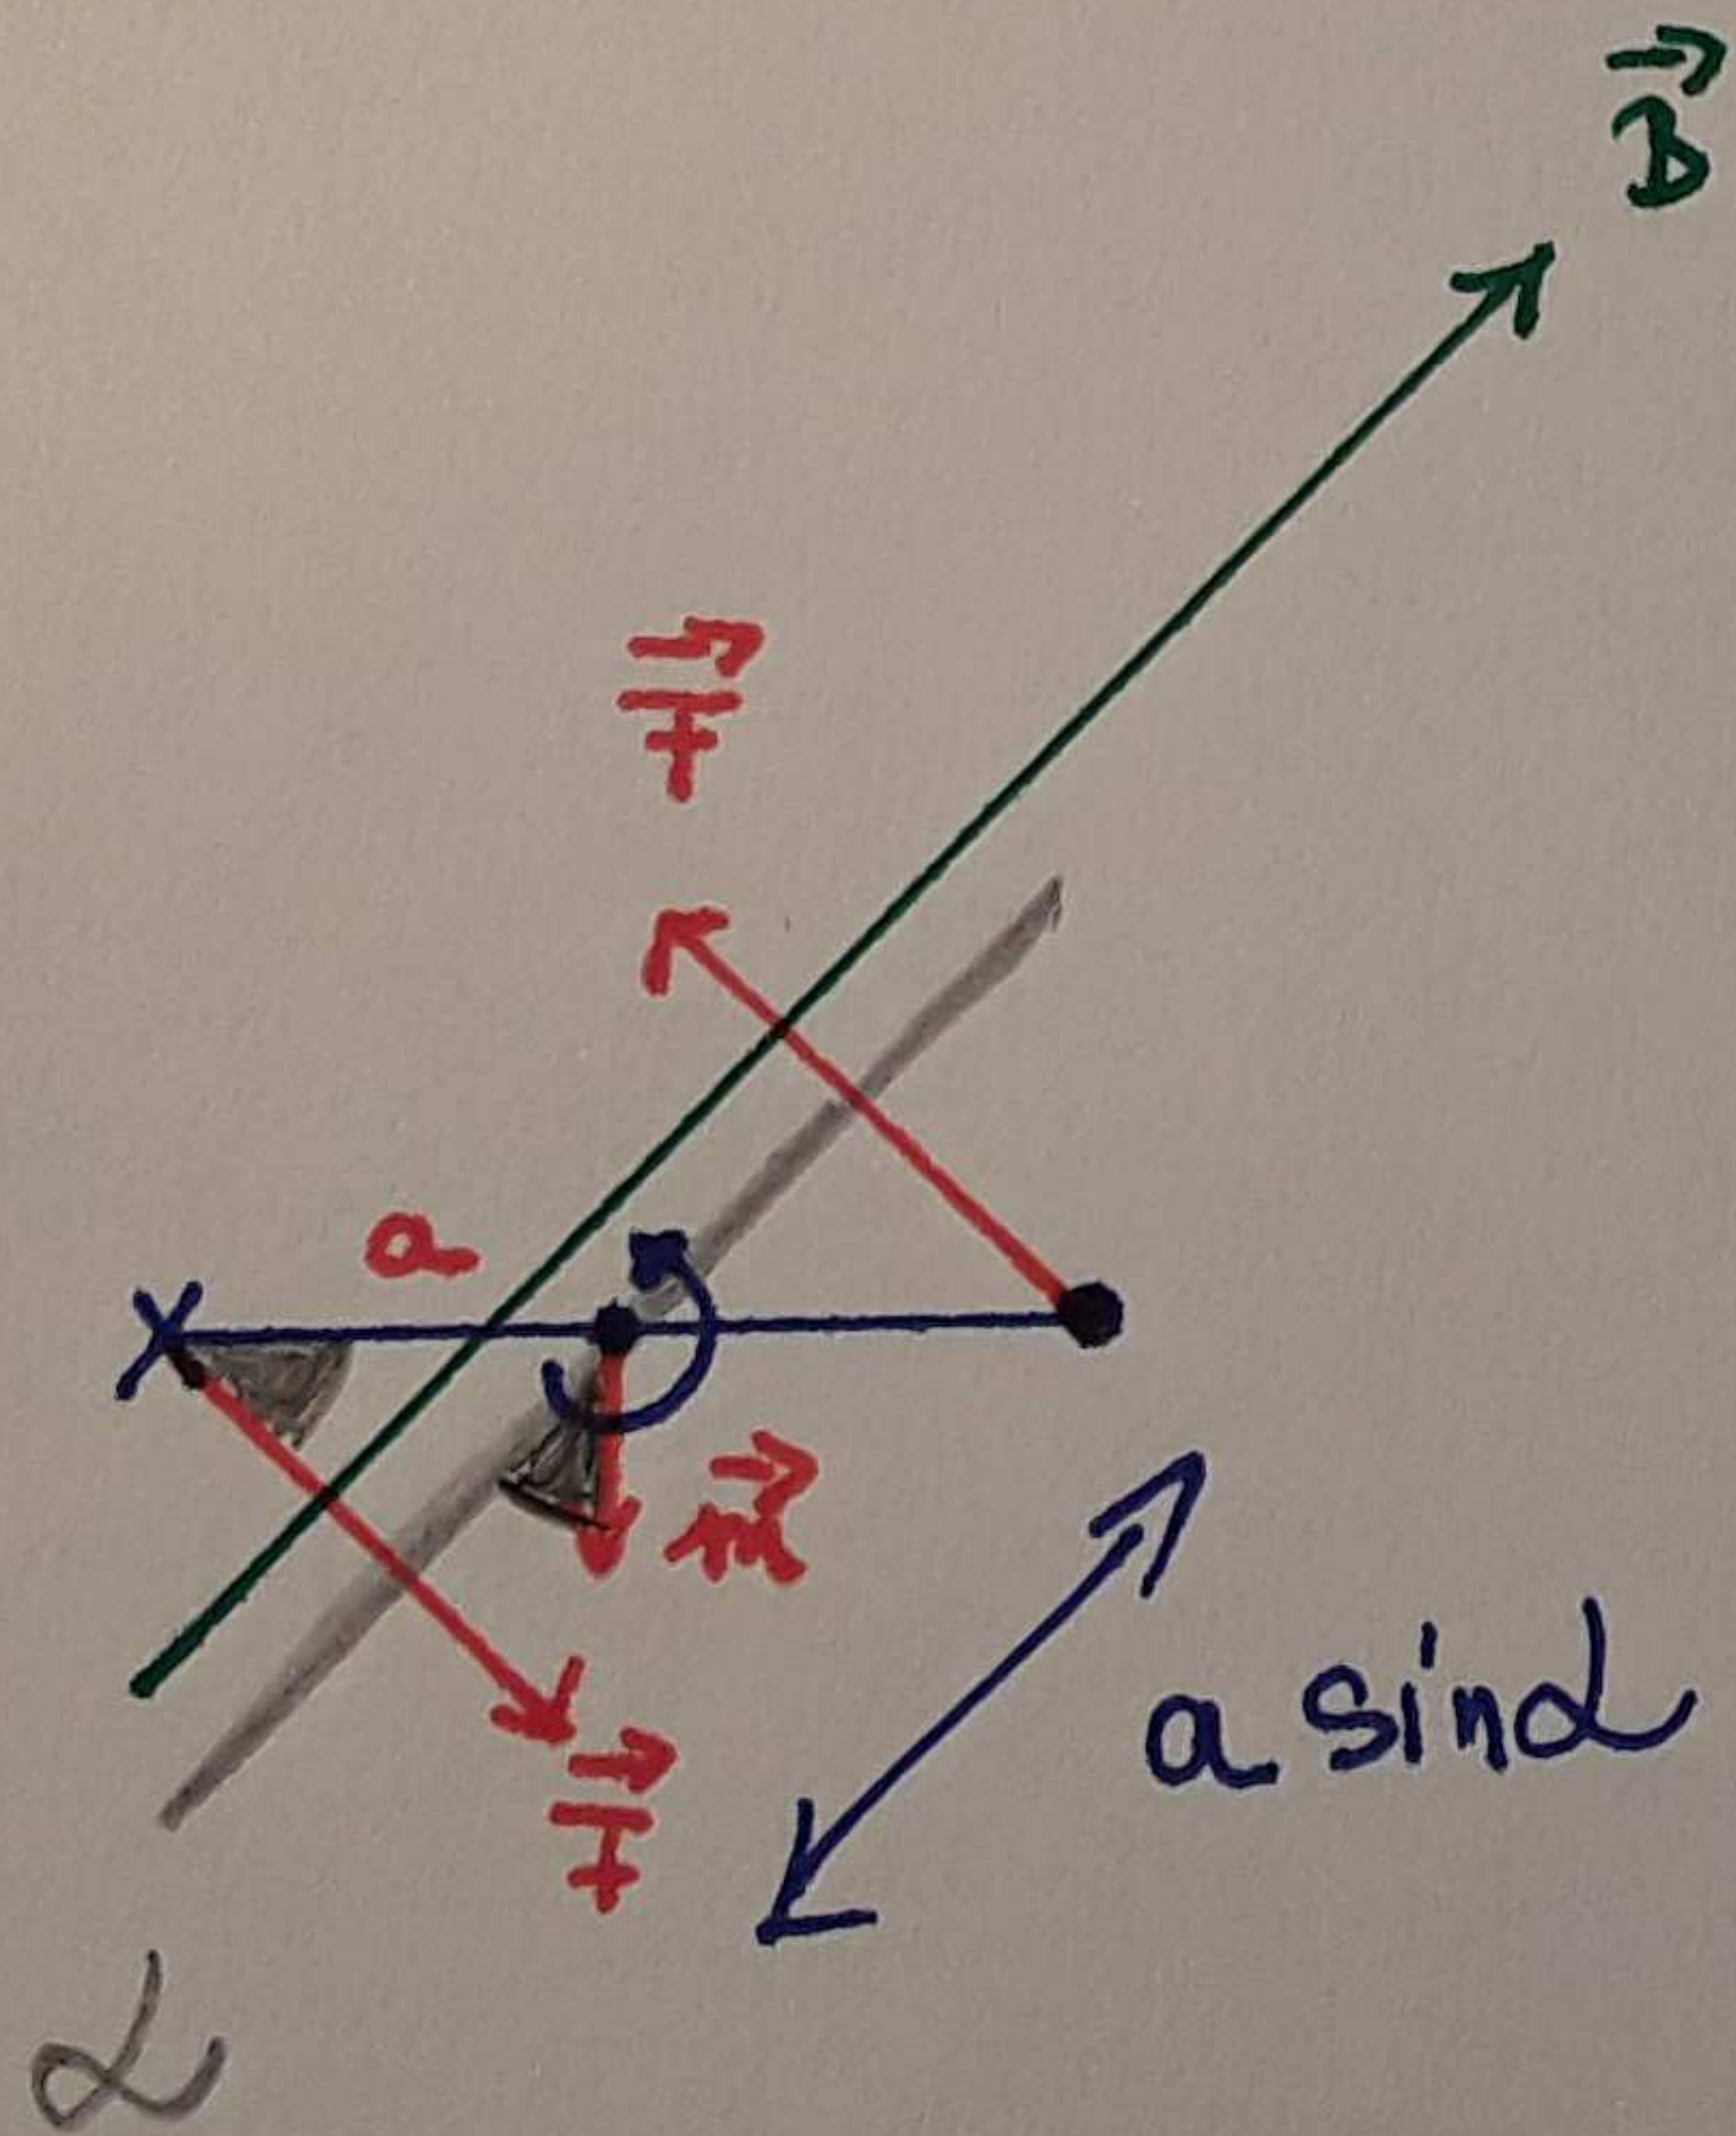 B⃗
F⃗
a
n⃗
F⃗
a sinα
α